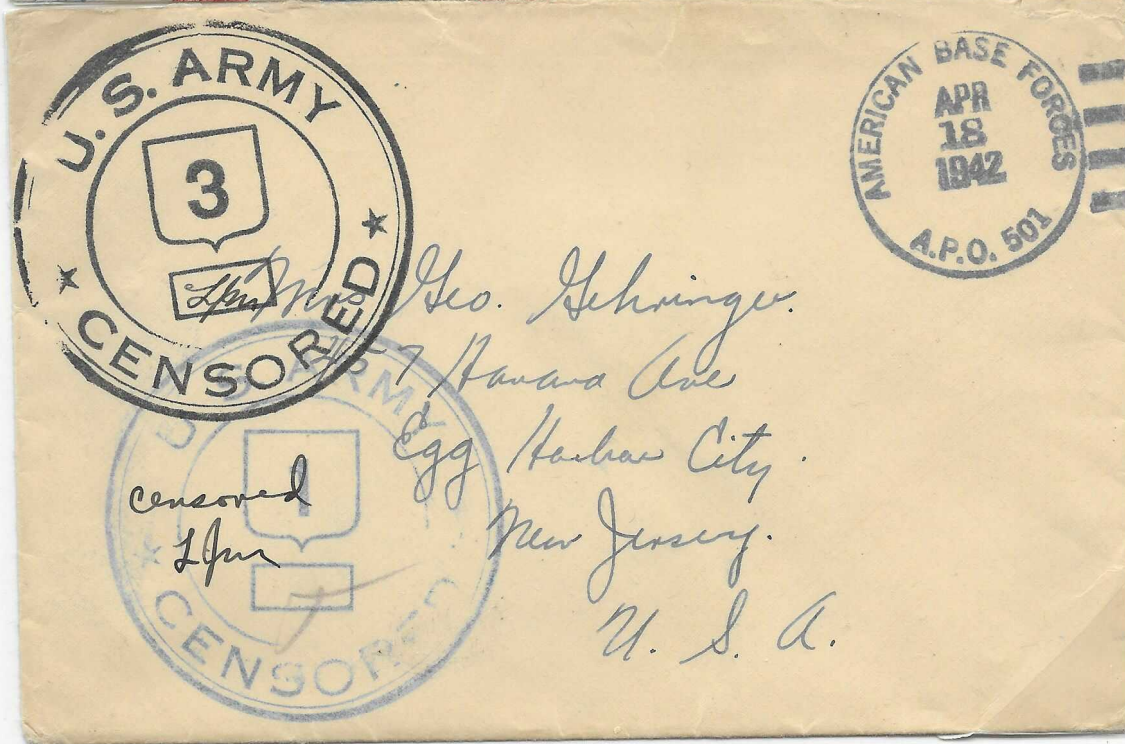 U.S. ARMY
3
CENSORED
AMERICAN BASE FORCES
APR
18
1942
A.P.O. 501
Geo. Gehringer.
7 Havana Ave
Egg Harbor City.
New Jersey.
U. S. A.
U.S. ARMY
1
CENSORED
censored